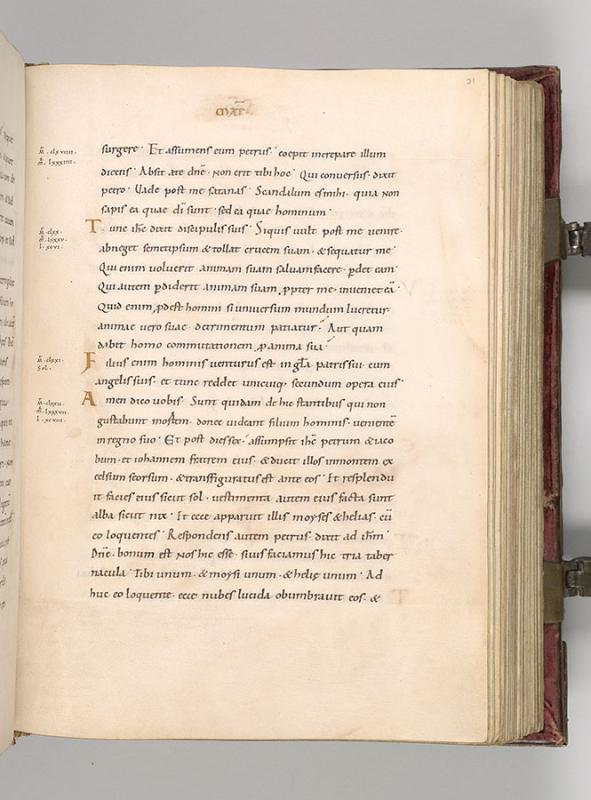 31
MAT
surgere · Et assumens eum petrus · coepit increpare illum
dicens · Absit a te dn̄e · Non erit tibi hoc · Qui conversus · dixit
petro · Vade post me satanas · Scandalum es mihi · quia non
sapis ea quae dī sunt · sed ea quae hominum ·
Tunc ihc̄ dixit discipulis suis · Siquis vult post me venire ·
abneget semetipsum & tollat crucem suam · & sequatur me ·
Qui enim voluerit animam suam salvam facere · ꝑdet eam ·
Qui autem ꝑdiderit animam suam ꝓpter me · inveniet eā ·
Quid enim ꝓdest homini si universum mundum lucretur ·
animae vero suae detrimentum patiatur · Aut quam
dabit homo commutationem ꝓ anima sua ·
Filius enim hominis venturus est in gl̄a patris sui · cum
angelis suis · et tunc reddet unicuiq; secundum opera eius ·
Amen dico vobis · Sunt quidam de hic stantibus qui non
gustabunt mortem · donec videant filium hominis · venientē
in regno suo · Et post dies sex · assumpsit ihc̄ petrum & iaco
bum · et iohannem fratrem eius · & ducit illos in montem ex
celsum seorsum · & transfiguratus est ante eos · Et resplendu
it facies eius sicut sol · vestimenta autem eius facta sunt
alba sicut nix · Et ecce apparuit illis moyses & helias · cū
eo loquentes · Respondens autem petrus · dixit ad ihm̄ ·
Dn̄e · bonum est nos hic esse · si vis faciamus hic tria taber
nacula · Tibi unum · & moysi unum · & helię unum · Ad
huc eo loquente · ecce nubes lucida obumbravit eos · &